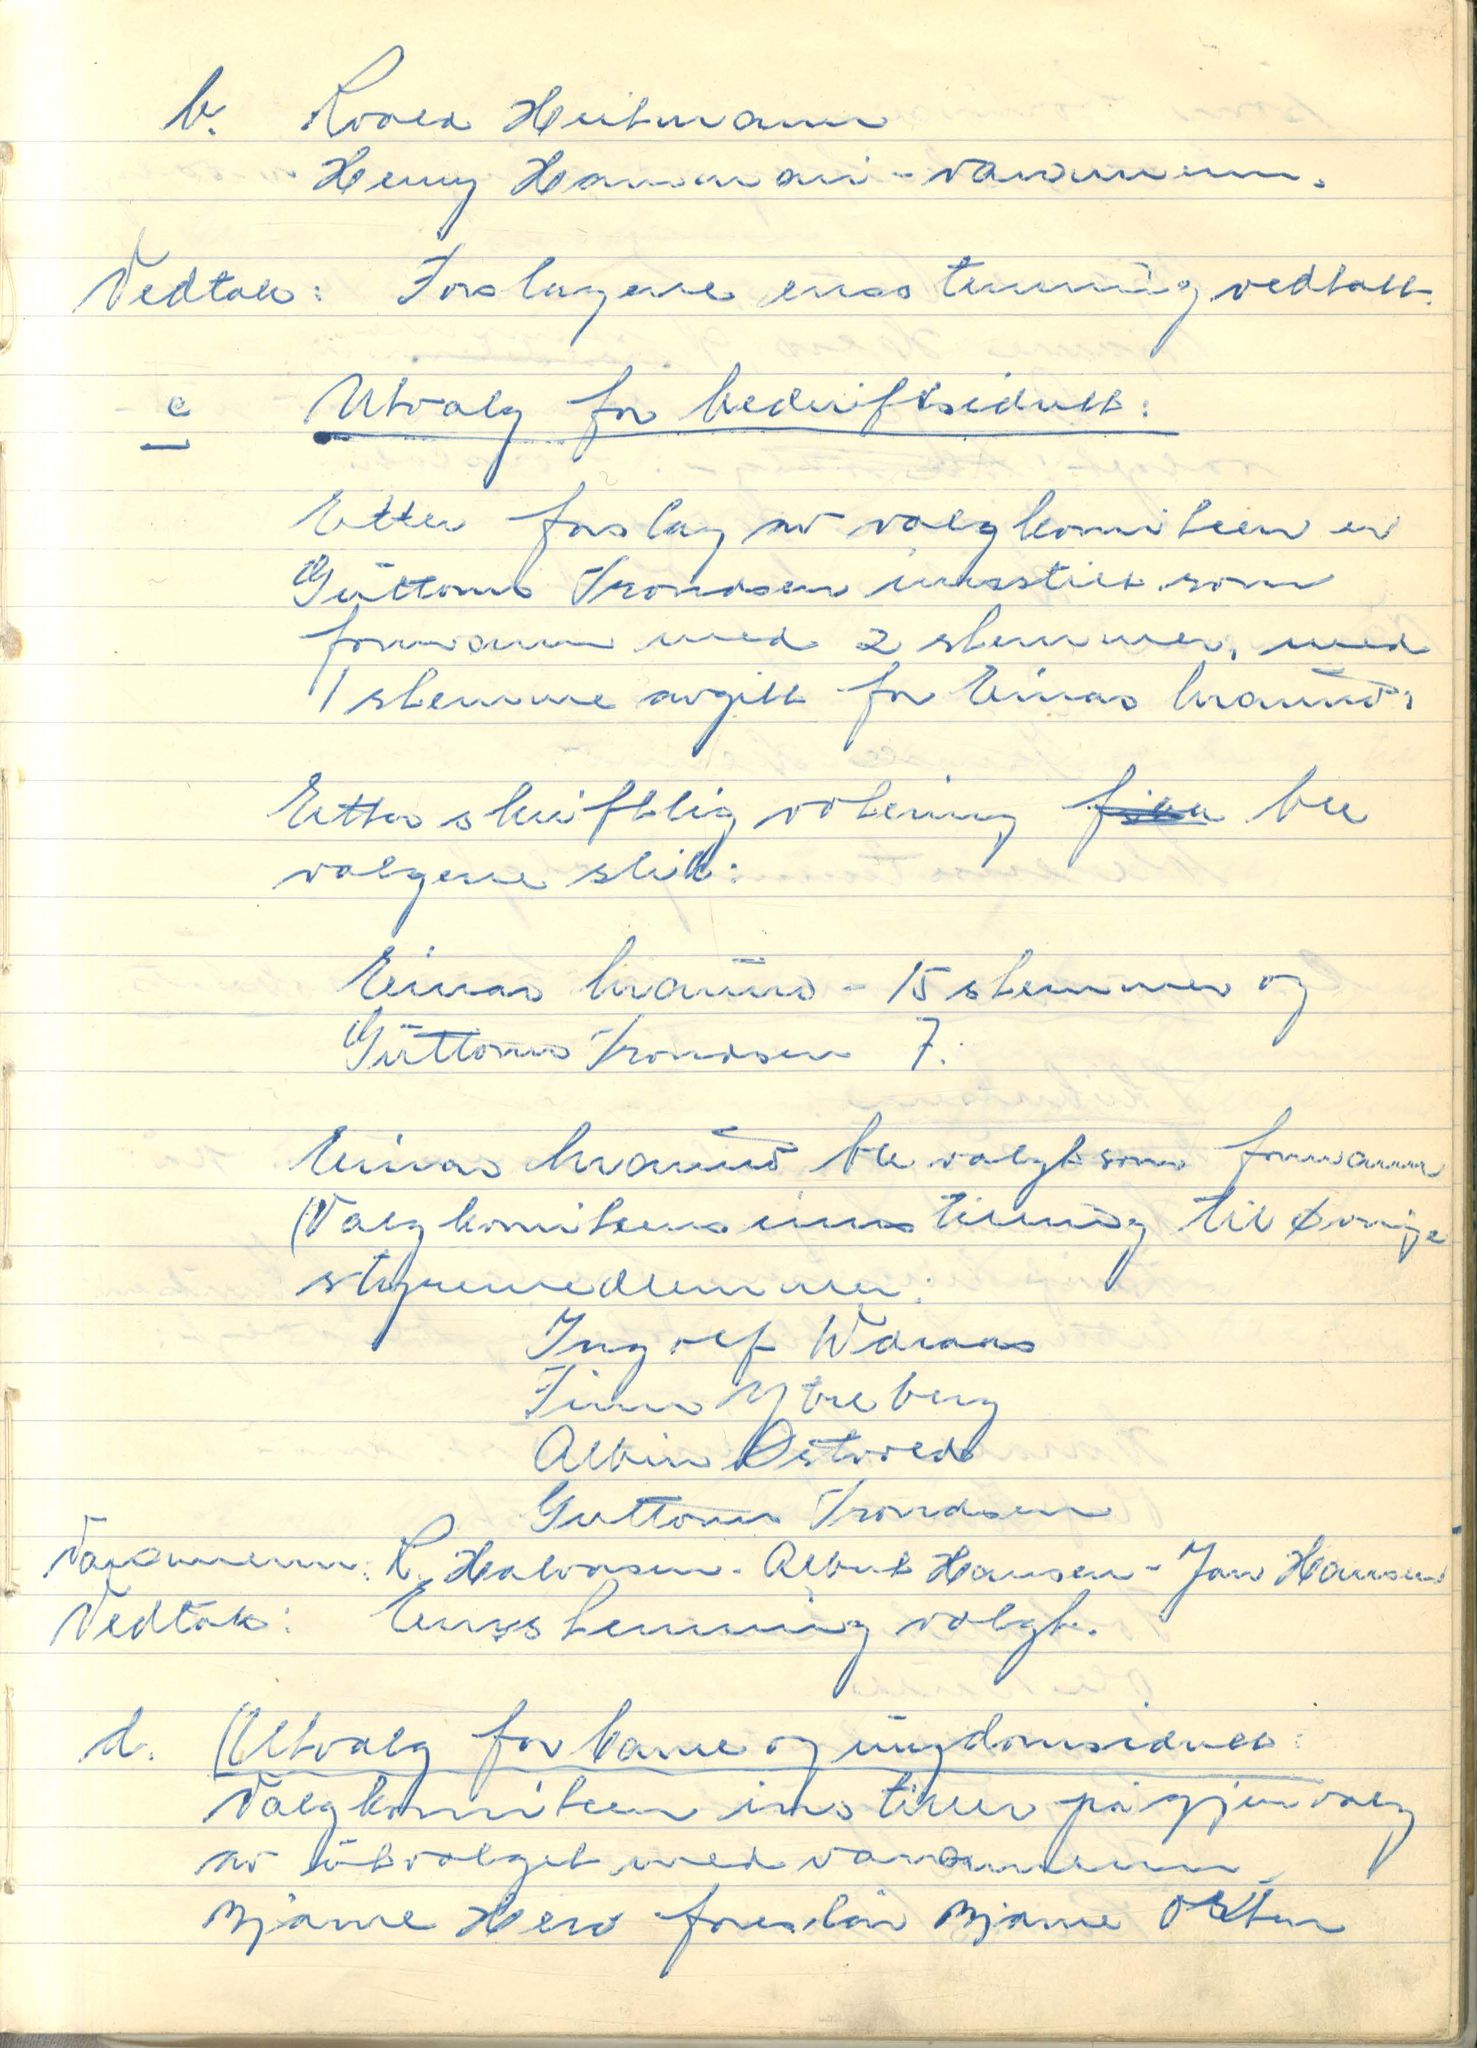 b. Roald Heitmann
Henry Hammari - varamenn.
Vedtak: Forslagene ensstemmig vedtatt.
c Utvalg for bedriftsidrett:
Etter forslag av valgkomiteen er
Guttorm Trondsen innstilt som
formann med 2 stemmer, med
1 stemme avgitt for Einar
Etter skriftlig votering ble
valgene slik:
Einar - 15 stemmer og
Guttorm Trondsen 7.
Einar ble valgt som formann
Valgkomiteens innstilling til øvrige
styremedlemmer:
Ingolf Waraas
Finn Ytreberg
Albin Østvold
Guttorm Trondsen
Varamenn: R. Halvorsen - Albert Hansen - Jan Hansen
Vedtak: Ensstemmig valgt.
d. Utvalg for barne og ungdomsidrett:
Valgkomiteen innstiller på gjenvalg
av utvalget med varamenn
Bjarne foreslår Bjarne